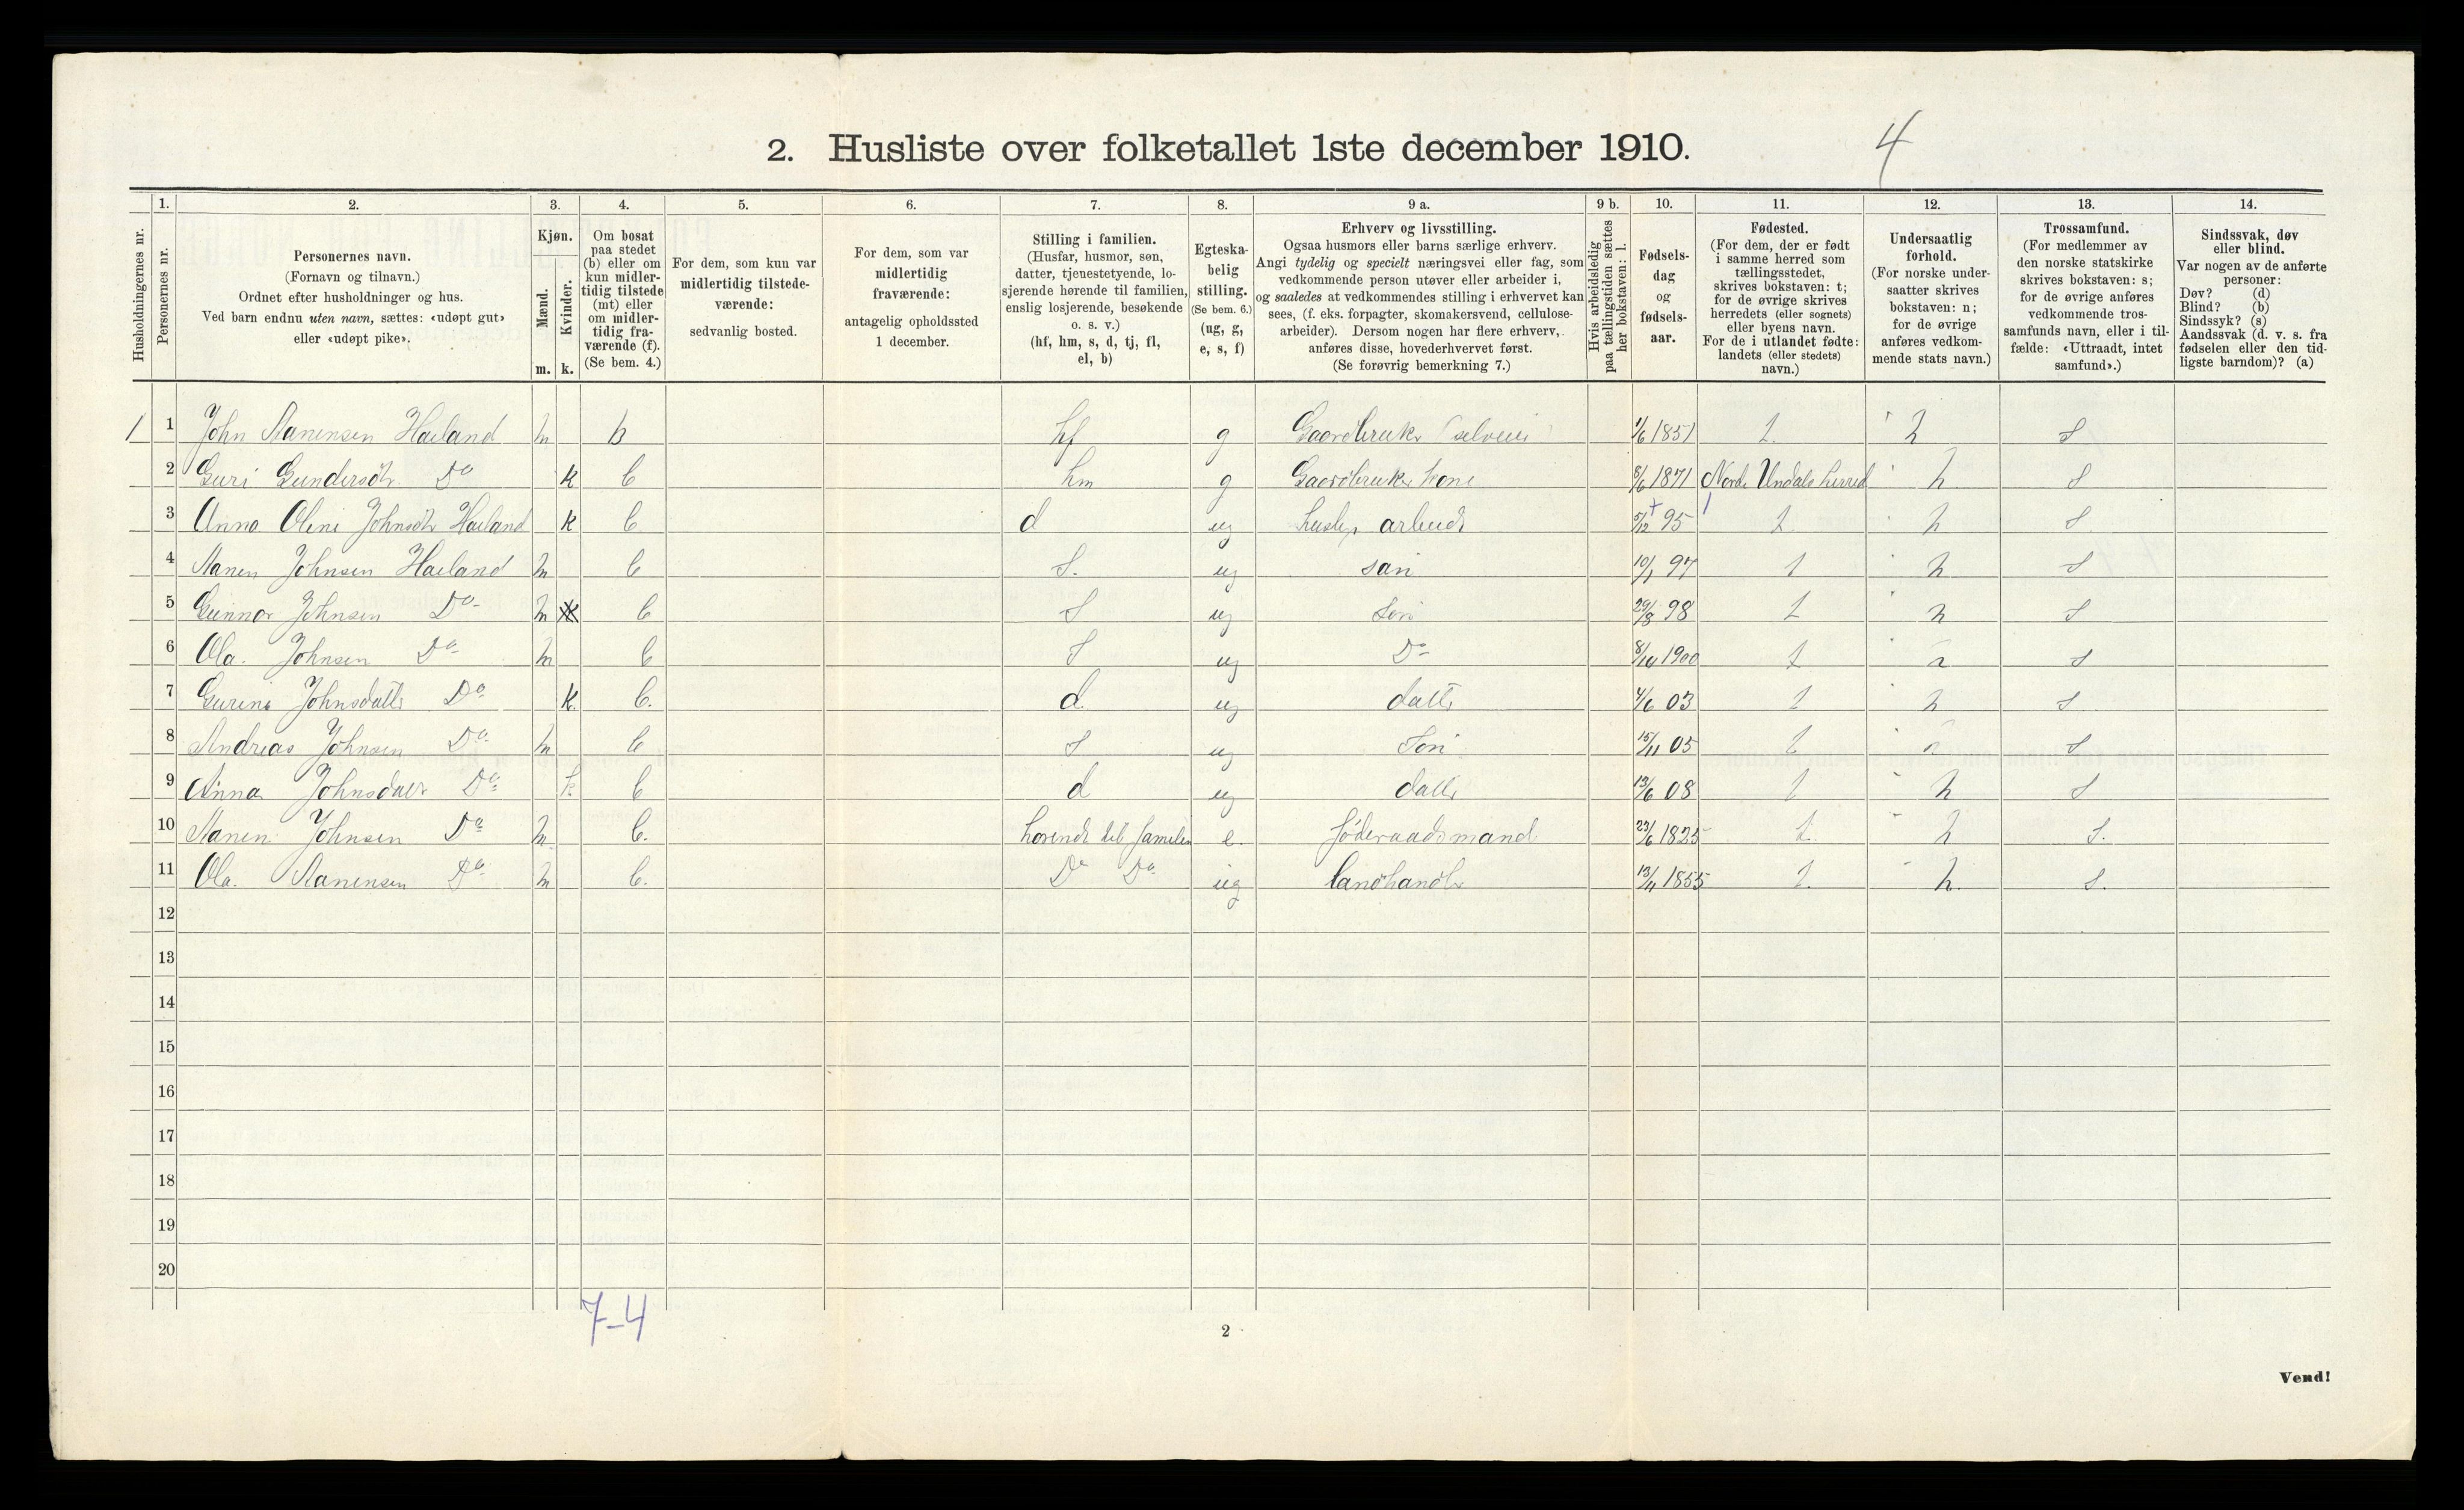 4
2. Husliste over folketallet 1ste december 1910.
Husholdningernes nr.
1. Personernes nr.
2. Personernes navn. (Fornavn og tilnavn.) Ordnet efter husholdninger og hus. Ved barn endnu uten navn, sættes: «udøpt gut» eller «udøpt pike».
3. Kjøn. Mænd. m. Kvinder. k.
4. Om bosat paa stedet (b) eller om kun midler-tidig tilstede (mt) eller om midler-tidig fra-værende (f). (Se bem. 4.)
5. For dem, som kun var midlertidig tilstede-værende: sedvanlig bosted.
6. For dem, som var midlertidig fraværende: antagelig opholdssted 1 december.
7. Stilling i familien. (Husfar, husmor, søn, datter, tjenestetyende, lo-sjerende hørende til familien, enslig losjerende, besøkende o. s. v.) (hf, hm, s, d, tj, fl, el, b)
8. Egteska-belig stilling. (Se bem. 6.) (ug, g, e, s, f)
9 a. Erhverv og livsstilling. Ogsaa husmors eller barns særlige erhverv. Angi tydelig og specielt næringsvei eller fag, som vedkommende person utøver eller arbeider i, og saaledes at vedkommendes stilling i erhvervet kan sees, (f. eks. forpagter, skomakersvend, cellulose-arbeider). Dersom nogen har flere erhverv, anføres disse, hovederhvervet først. (Se forøvrig bemerkning 7.)
9 b. Hvis arbeidsledig paa tællingstiden sættes her bokstaven: l.
10. Fødsels-dag og fødsels-aar.
11. Fødested. (For dem, der er født i samme herred som tællingsstedet, skrives bokstaven: t; for de øvrige skrives herredets (eller sognets) eller byens navn. For de i utlandet fødte: landets (eller stedets) navn.)
12. Undersaatlig forhold. (For norske under-saatter skrives bokstaven: n; for de øvrige anføres vedkom-mende stats navn.)
13. Trossamfund. (For medlemmer av den norske statskirke skrives bokstaven: s; for de øvrige anføres vedkommende tros-samfunds navn, eller i til-fælde: «Uttraadt, intet samfund».)
14. Sindssvak, døv eller blind. Var nogen av de anførte personer: Døv? (d) Blind? (b) Sindssyk? (s) Aandssvak (d. v. s. fra fødselen eller den tid-ligste barndom)? (a)
1 1 John Aanensen Haaland m b hf g Gaardbruker selveier 1/6 1851 t n s
2 Guri Gundersdtr. Do k b hm g Gaardbruker kone 8/6 1871 Nord. Undals herred n s
3 Anna Oline Johnsdtr Haaland k b d ug arbeide 5/12 95 t n s
4 Aanen Johnsen Haaland m b s. ug søn 10/1 97 t n s
5 Gunnar Johnsen Do m b s ug søn 29/8 98 t n s
6 Ola. Johnsen Do m b s ug Do 8/10 1900 t n s
7 Gurine Johnsdattr Do k. b. d ug dattr 4/6 03 t n s
8 Andreas Johnsen Do m b s ug søn 15/11 05 t n s
9 Anna Johnsdatr Do k b d ug dattr 13/6 08 t n s
10 Aanen Johnsen Do m. b. hørende til familien e. føderaadsmand 23/6 1825 t. n s.
11 Ola. Aanensen Do m b. Do Do ug landhandlr 13/11 1855 t. n. s.
12
13
14
15
16
17
18
19
20
7-4
2
Vend!